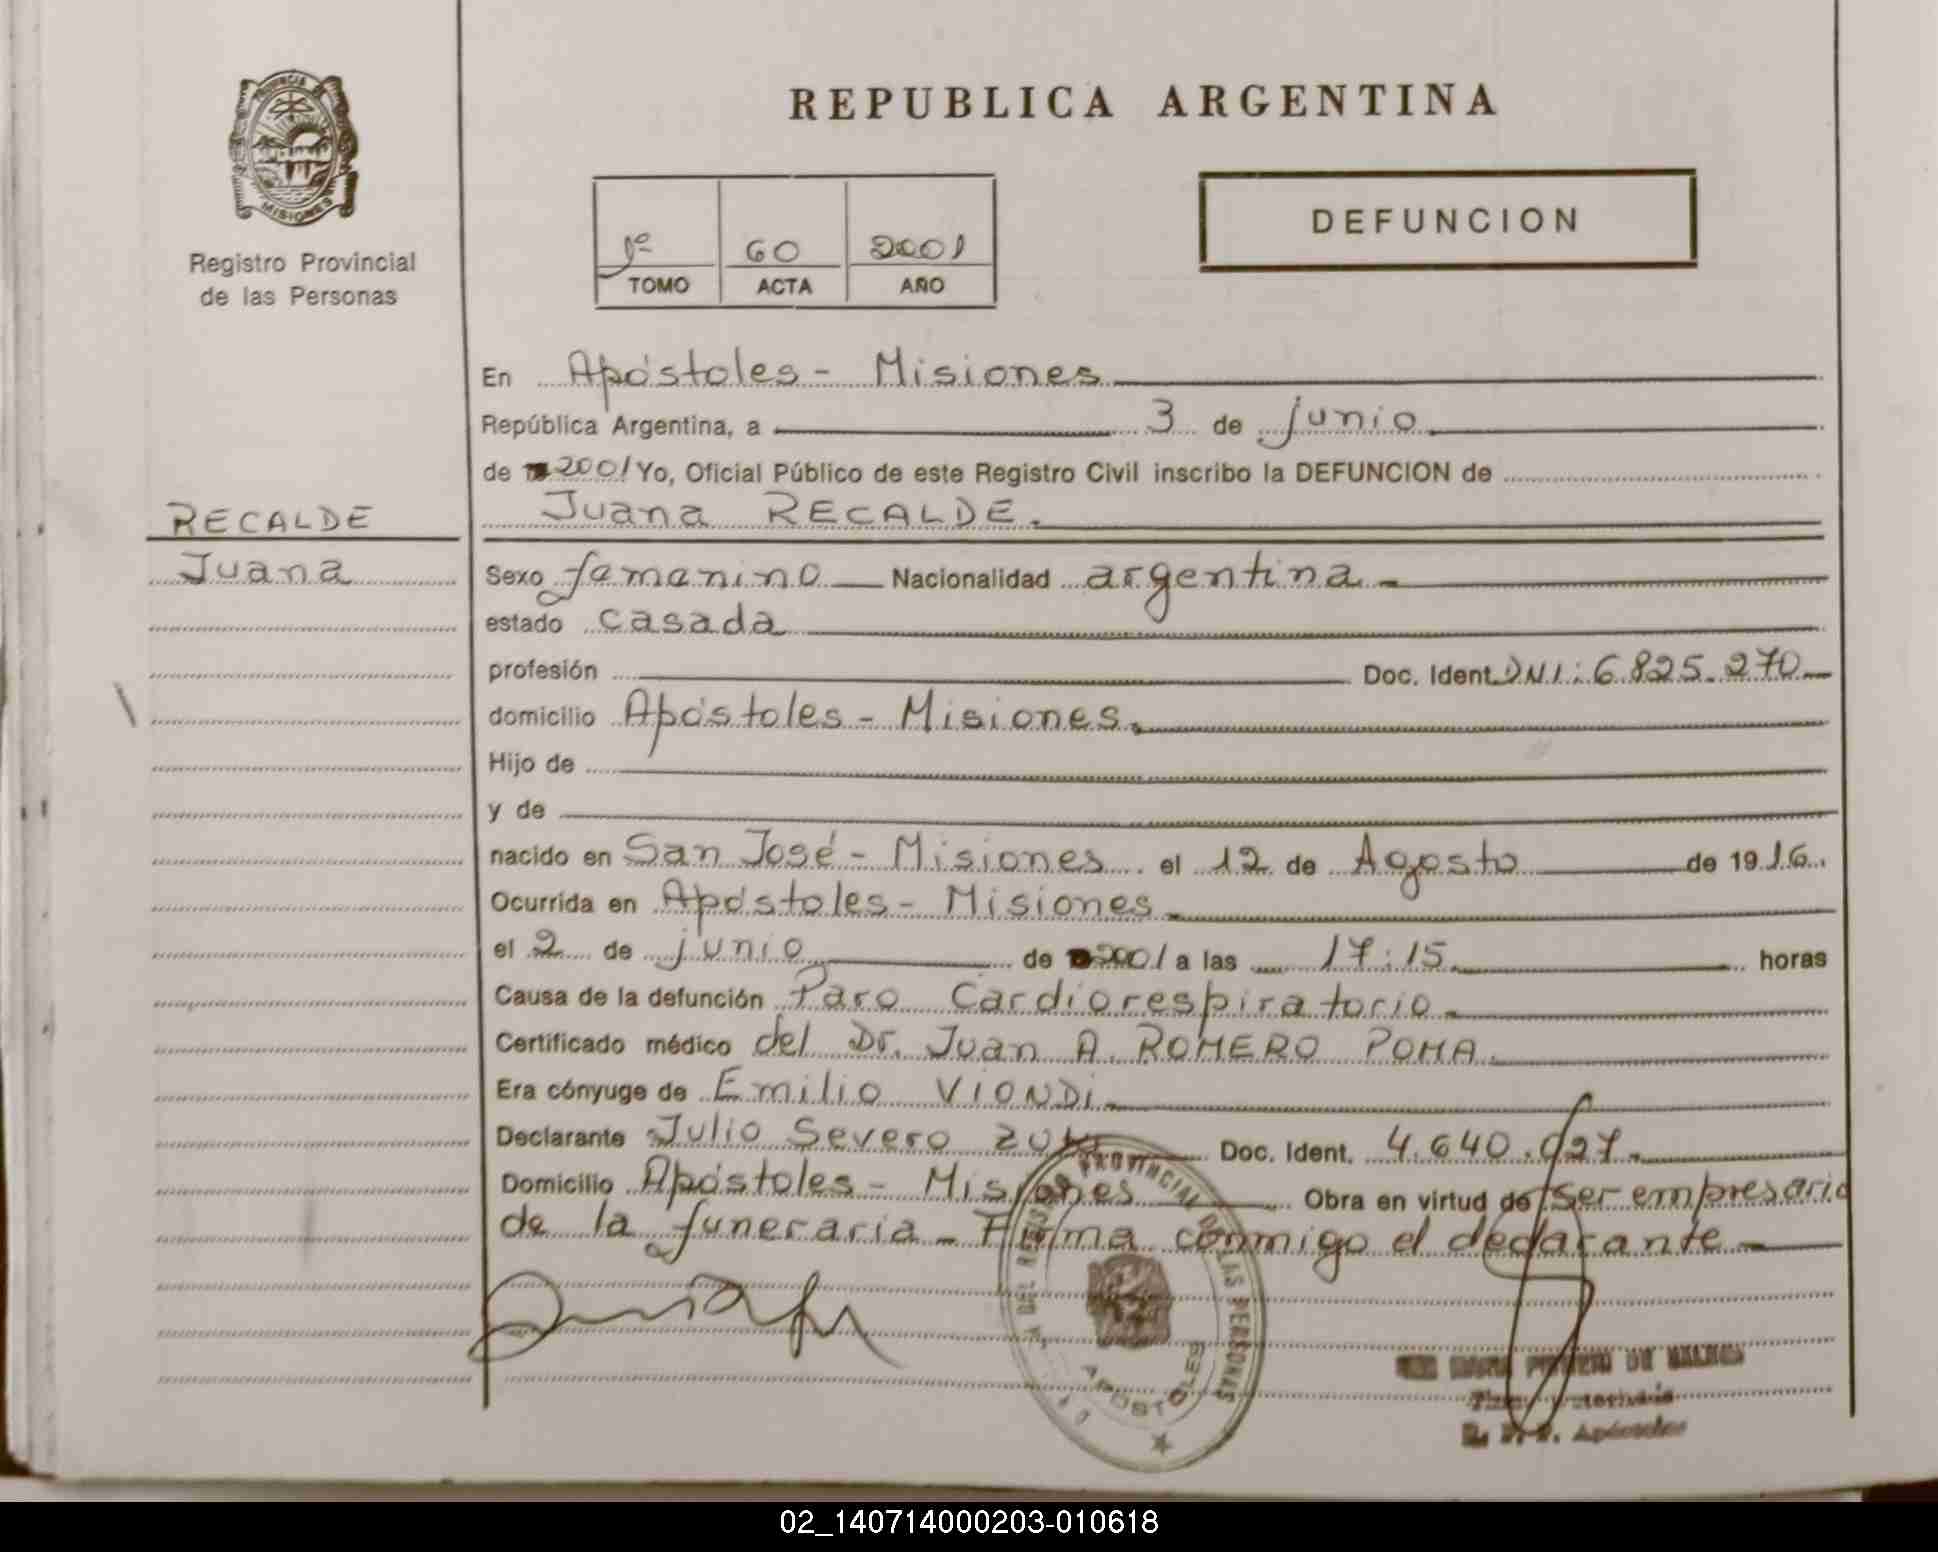 PROVINCIA DE
MISIONES
Registro Provincial
de las Personas
REPUBLICA ARGENTINA
1º 60 2001
TOMO ACTA AÑO
DEFUNCION
En Apóstoles - Misiones
República Argentina, a 3 de junio
de 2001 Yo, Oficial Público de este Registro Civil inscribo la DEFUNCION de
RECALDE
Juana RECALDE.
Juana
Sexo femenino Nacionalidad argentina -
estado casada
profesión Doc. Ident. DNI: 6.825.270
domicilio Apóstoles - Misiones.
Hijo de
y de
nacido en San José - Misiones el 12 de Agosto de 1916.
Ocurrida en Apóstoles - Misiones
el 2 de junio de 2001 a las 17:15 horas
Causa de la defunción Paro Cardiorespiratorio
Certificado médico del Dr. Juan A. ROMERO POMA.
Era cónyuge de Emilio VIONDI
Declarante Julio Severo Doc. Ident. 4.640.027.
Domicilio Apóstoles - Misiones Obra en virtud de ser empresario
de la funeraria - Firma conmigo el declarante -
DEL REGISTRO PROVINCIAL DE LAS PERSONAS
APOSTOLES
Apóstoles
02_140714000203-010618